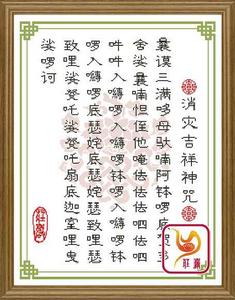 消灾吉祥神咒
曩謨三满哆母馱喃阿钵啰底
舍娑曩喃怛侄他唵佉佉呬佉呬
吽吽入嚩啰入嚩啰钵啰入嚩啰钵
啰入嚩啰底瑟姹瑟姹瑟致哩瑟
致哩娑癹吒娑癹吒扇底迦室哩曳
娑啰诃